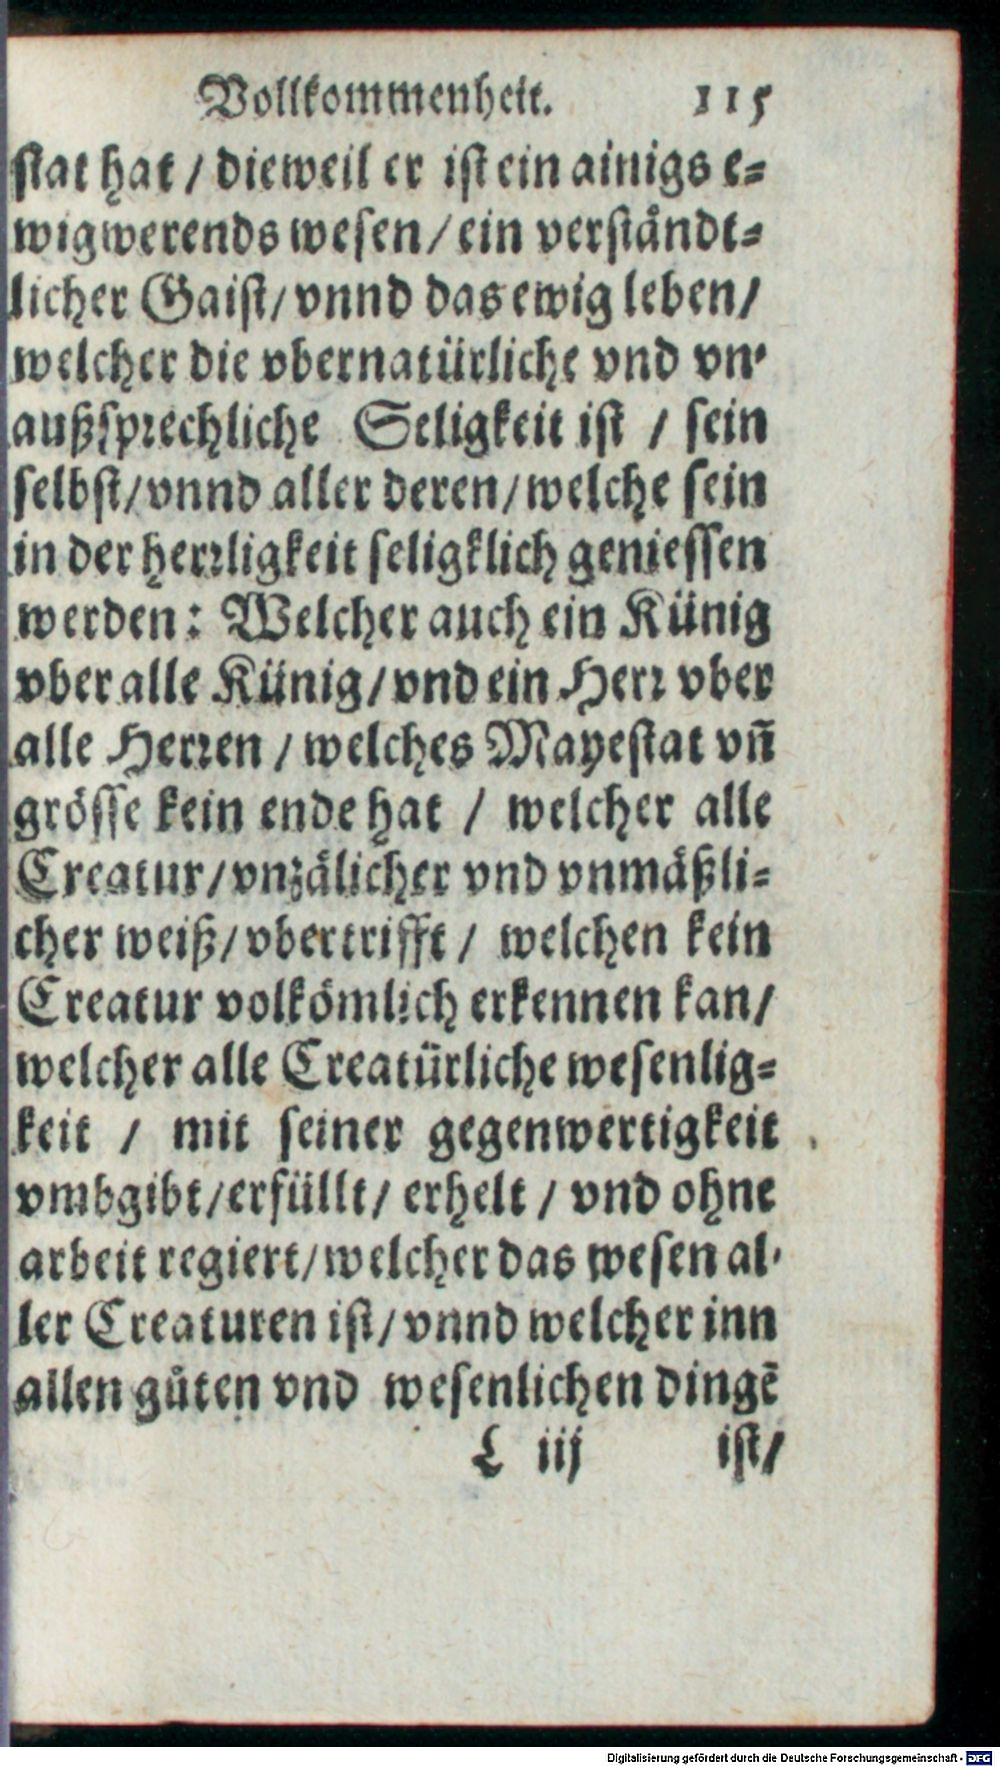 Vollkommenheit. 115
stat hat / dieweil er ist ein ainigs e-
wigwerends wesen / ein verståndt-
licher Gaist / vnnd das ewig leben /
welcher die vbernatürliche vnd vn-
außsprechliche Seligkeit ist / sein
selbst / vnnd aller deren / welche sein
in der herrligkeit seligklich geniessen
werden: Welcher auch ein Künig
vber alle Künig / vnd ein Herr vber
alle Herren / welches Mayestat vn̄
grösse kein ende hat / welcher alle
Creatur / vnzälicher vnd vnmäßli-
cher weiß / vbertrifft / welchen kein
Creatur volkömlich erkennen kan /
welcher alle Creatürliche wesenlig-
keit / mit seiner gegenwertigkeit
vmbgibt / erfüllt / erhelt / vnd ohne
arbeit regiert / welcher das wesen al-
ler Creaturen ist / vnnd welcher inn
allen gůten vnd wesenlichen dingē
L iij ist /
Digitalisierung gefördert durch die Deutsche Forschungsgemeinschaft - DFG